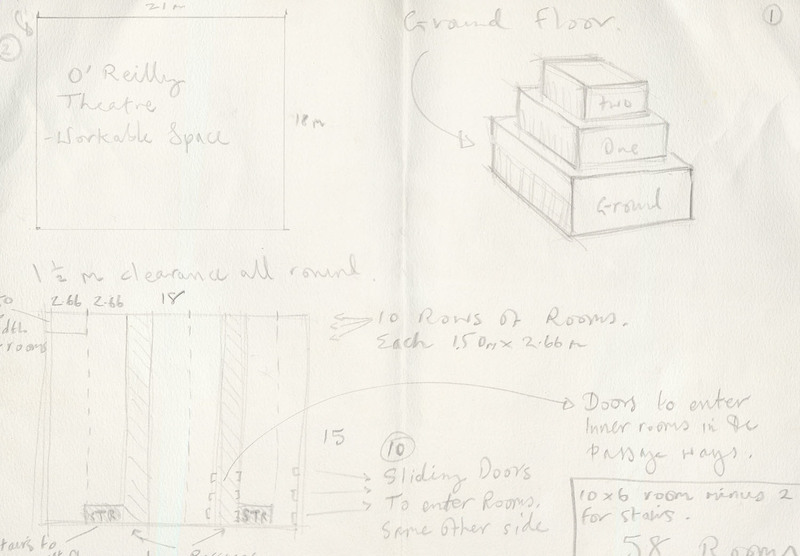 2
21m
O' Reilly
Theatre
-Workable Space
18m
1 ½ m clearance all round.
Ground Floor.
1
two
One
Ground
2.66 2.66
18
rooms
10 Rows of Rooms.
Each 1.50m x 2.66m
15
STR
STR
Doors to enter
Inner rooms in the
Passage ways.
10
Sliding Doors
To enter Rooms.
Same other side
10x6 room minus 2
for stairs.
58 Rooms